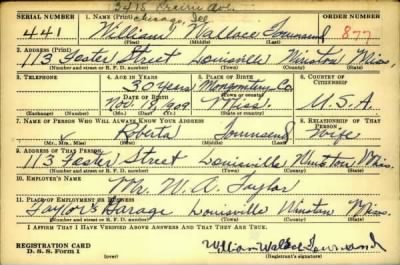 3415 Prairie Ave.
Chicago, Ill
SERIAL NUMBER 1. NAME (Print) ORDER NUMBER
441 William Wallace Townsend 877
(First) (Middle) (Last)
2. ADDRESS (Print)
113 Foster Street Louisville Winston Miss.
(Number and street or R. F. D. number) (Town) (County) (State)
3. TELEPHONE 4. AGE IN YEARS 5. PLACE OF BIRTH 6. COUNTRY OF CITIZENSHIP
30 years Montgomery Co.
DATE OF BIRTH (Town or county)
Nov. 18, 1909 Miss. U.S.A.
(Exchange) (Number) (Mo.) (Day) (Yr.) (State or country)
7. NAME OF PERSON WHO WILL ALWAYS KNOW YOUR ADDRESS 8. RELATIONSHIP OF THAT PERSON
Roberta Townsend Wife
(Mr., Mrs., Miss) (First) (Middle) (Last)
9. ADDRESS OF THAT PERSON
113 Foster Street Louisville Winston Miss.
(Number and street or R. F. D. number) (Town) (County) (State)
10. EMPLOYER'S NAME
Mr. W. A. Taylor
11. PLACE OF EMPLOYMENT OR BUSINESS
Taylor's Garage Louisville Winston Miss.
(Number and street or R. F. D. number) (Town) (County) (State)
I AFFIRM THAT I HAVE VERIFIED ABOVE ANSWERS AND THAT THEY ARE TRUE.
REGISTRATION CARD
D. S. S. Form 1 (over) William Wallace Townsend
(Registrant's signature)